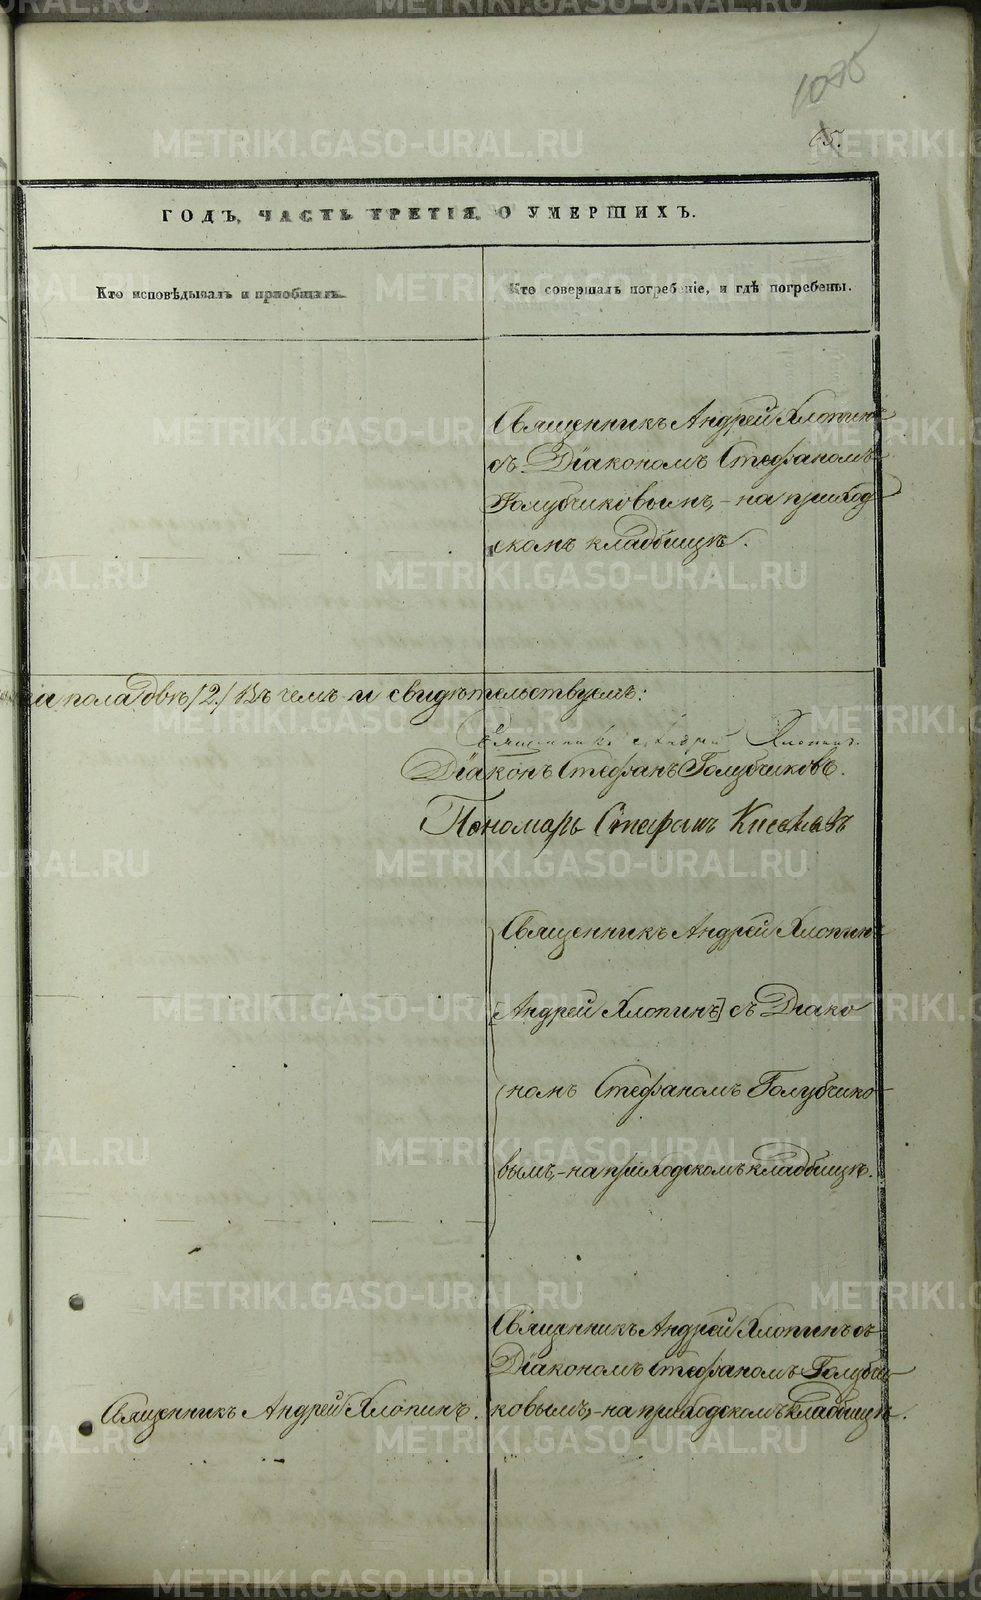 1075
65.
ГОДЪ, ЧАСТЬ ТРЕТІЯ, О УМЕРШИХЪ.
Кто исповѣдывалъ и пріобщалъ.
Кто совершалъ погребеніе, и гдѣ погребены.
Священникъ Андрей Хлопинъ
съ Діакономъ Стефаномъ
Голубчиковымъ, - на приход
скомъ кладбищѣ.
пола двѣ /2/ Въ чемъ и свидѣтельствуемъ:
Священникъ Андрей Хлопинъ.
Діаконъ Стефанъ Голубчиковъ.
Пономарь Стефанъ Киселевъ
Священникъ Андрей Хлопинъ
[Андрей Хлопинъ] съ Діако
номъ Стефаномъ Голубчико
вымъ, - на приходскомъ кладбищѣ.
Священникъ Андрей Хлопинъ.
Священникъ Андрей Хлопинъ съ
Діакономъ Стефаномъ Голубчи
ковымъ, - на приходскомъ кладбищѣ.
METRIKI.GASO-URAL.RU